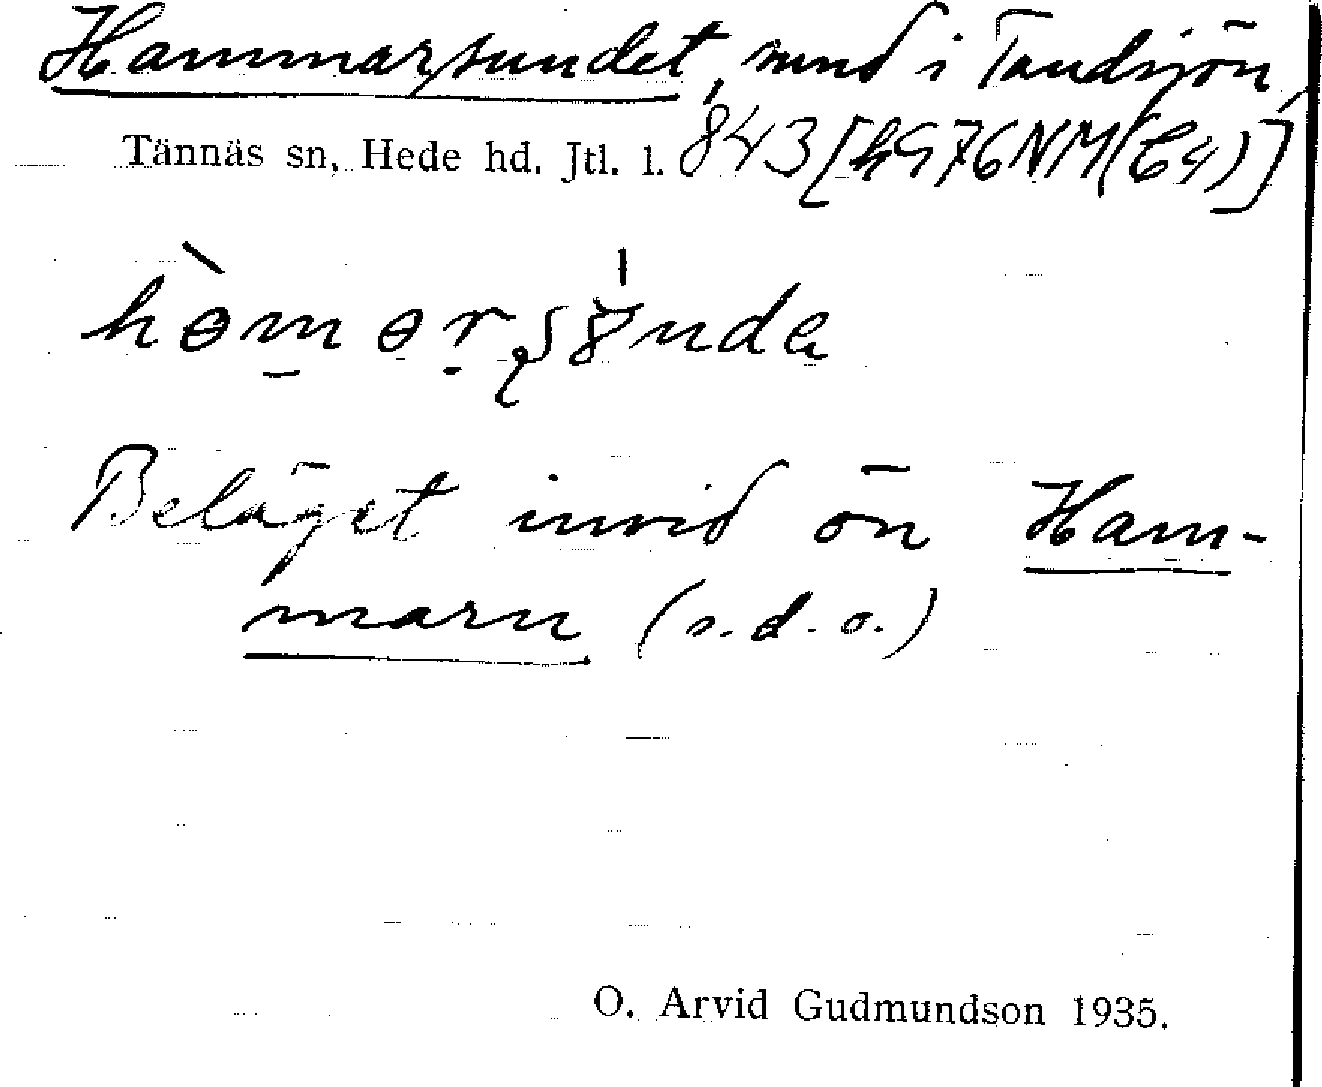 Hammarsundet, sund i Tandsjön,
Tännäs sn, Hede hd. Jtl. l. 843 [h976NM(C4)]
hɵmɵrsɣnda
Beläget invid ön Ham-
marn (s.d.o.)
O. Arvid Gudmundson 1935.